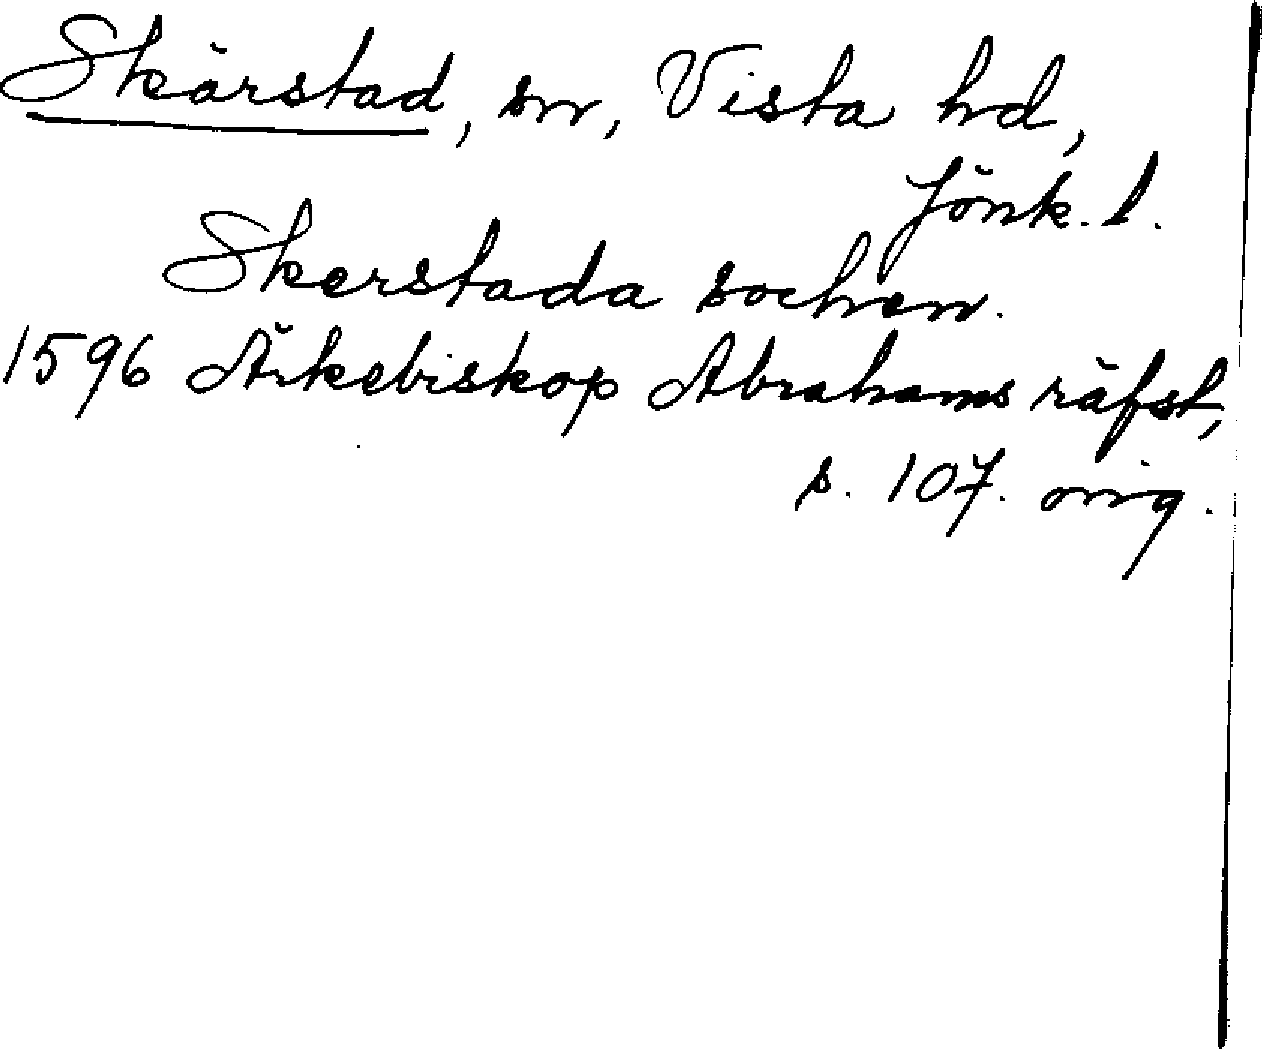 Skärstad, sn, Vista hd,
Jönk. l.
Skerstada sochen.
1596 Ärkebiskop Abrahams räfst,
s. 107. orig.